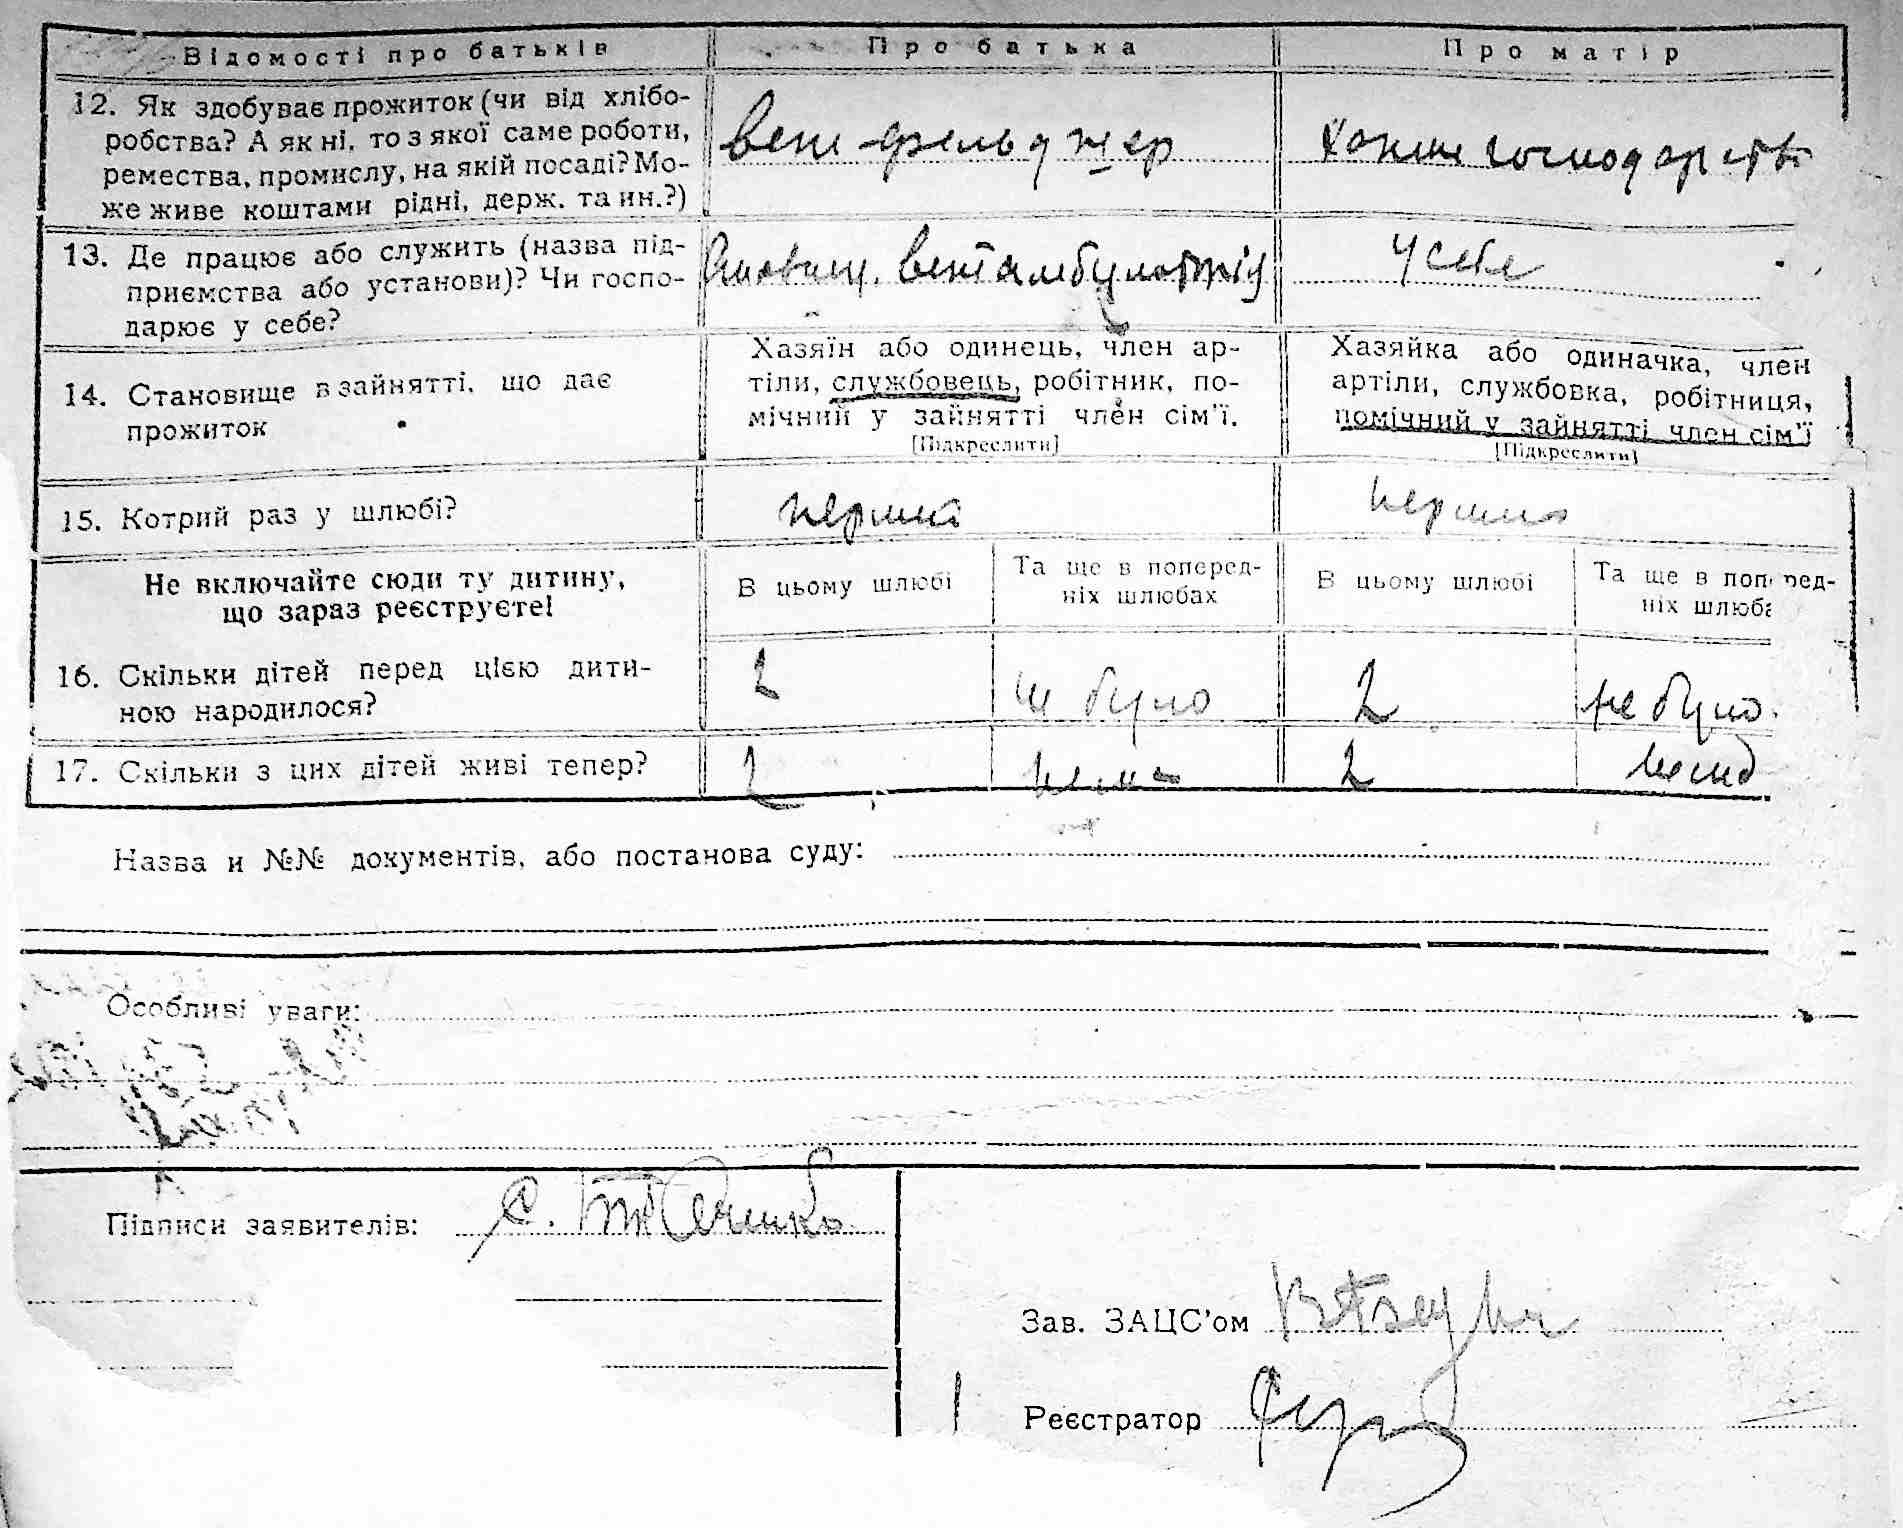 Відомості про батьків Про батька Про матір
12. Як здобуває прожиток (чи від хлібо-
робства? А як ні, то з якої саме роботи,
ремества, промислу, на якій посаді? Мо-
же живе коштами рідні, держ. та ин.?)
вет фельдшер
хатнє господарство
13. Де працює або служить (назва під-
приємства або установи)? Чи госпо-
дарює у себе?
у себе
14. Становище в зайнятті, що дає
прожиток
Хазяїн або одинець, член ар-
тіли, службовець, робітник, по-
мічний у зайнятті член сім'ї.
[Підкреслити]
Хазяйка або одиначка, член
артіли, службовка, робітниця,
помічний у зайнятті член сім'ї
[Підкреслити]
15. Котрий раз у шлюбі?
перший
перший
Не включайте сюди ту дитину,
що зараз реєструєте!
В цьому шлюбі
Та ще в поперед-
ніх шлюбах
В цьому шлюбі
Та ще в поперед-
ніх шлюба
16. Скільки дітей перед цією дити-
ною народилося?
2 не було 2 не було.
17. Скільки з цих дітей живі тепер?
2 нема 2 нема
Назва и №№ документів, або постанова суду:
Особливі уваги:
Підписи заявителів:
Зав. ЗАЦС'ом
Реєстратор